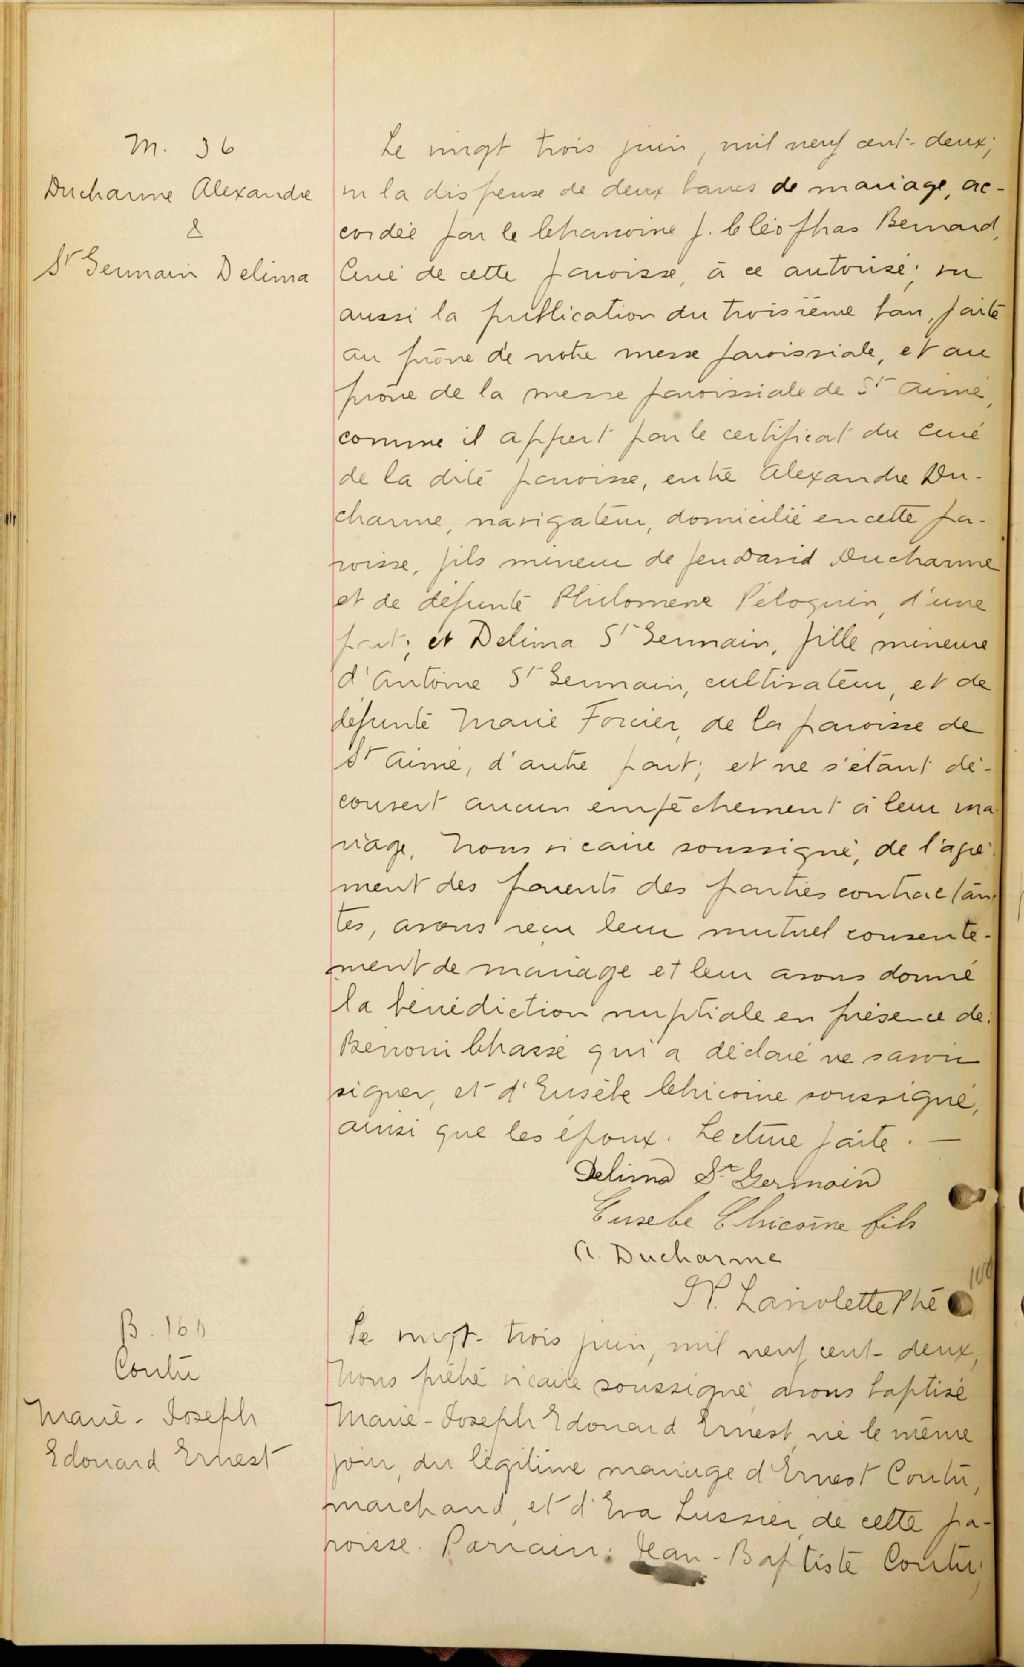 M. 36
Ducharme Alexandre
&
St Germain Delima
Le vingt trois juin, mil neuf cent-deux;
vu la dispense de deux bancs de mariage, ac-
cordée par le Chanoine J. Cléophas Bernard,
Curé de cette paroisse, à ce autorisé; vu
aussi la publication du troisième ban, faite
au prône de notre messe paroissiale, et au
prône de la messe paroissiale de St Aimé,
comme il appert par le certificat du curé
de la dite paroisse, entre Alexandre Du-
charme, navigateur, domicilié en cette pa-
roisse, fils mineur de feu David Ducharme
et de défunte Philomene Péloquin, d'une
part; et Delima St Germain, fille mineure
d'Antoine St Germain, cultivateur, et de
défunte Marie Forcier, de la paroisse de
St Aimé, d'autre part; et ne s'étant dé-
couvert aucun empêchement à leur ma-
riage, Nous vicaire soussigné, de l'agré-
ment des parents des parties contractan-
tes, avons reçu leur mutuel consente-
ment de mariage et leur avons donné
la bénédiction nuptiale en présence de
Benoni Chassé qui a déclaré ne savoir
signer, et d'Eusèbe Chicoine soussigné,
ainsi que les époux. Lecture faite. —
Delima St Germain
Eusebe Chicoine fils
A. Ducharme
Lariolette Ptre
B. 160
Coutu
Marie-Joseph
Edouard Ernest
Le vingt-trois juin, mil neuf cent-deux,
Nous prêtre vicaire soussigné avons baptisé
Marie-Joseph Edouard Ernest, né le même
jour, du légitime mariage d'Ernest Coutu,
marchand, et d'Eva Lussier, de cette pa-
roisse. Parrain: Jean-Baptiste Coutu;